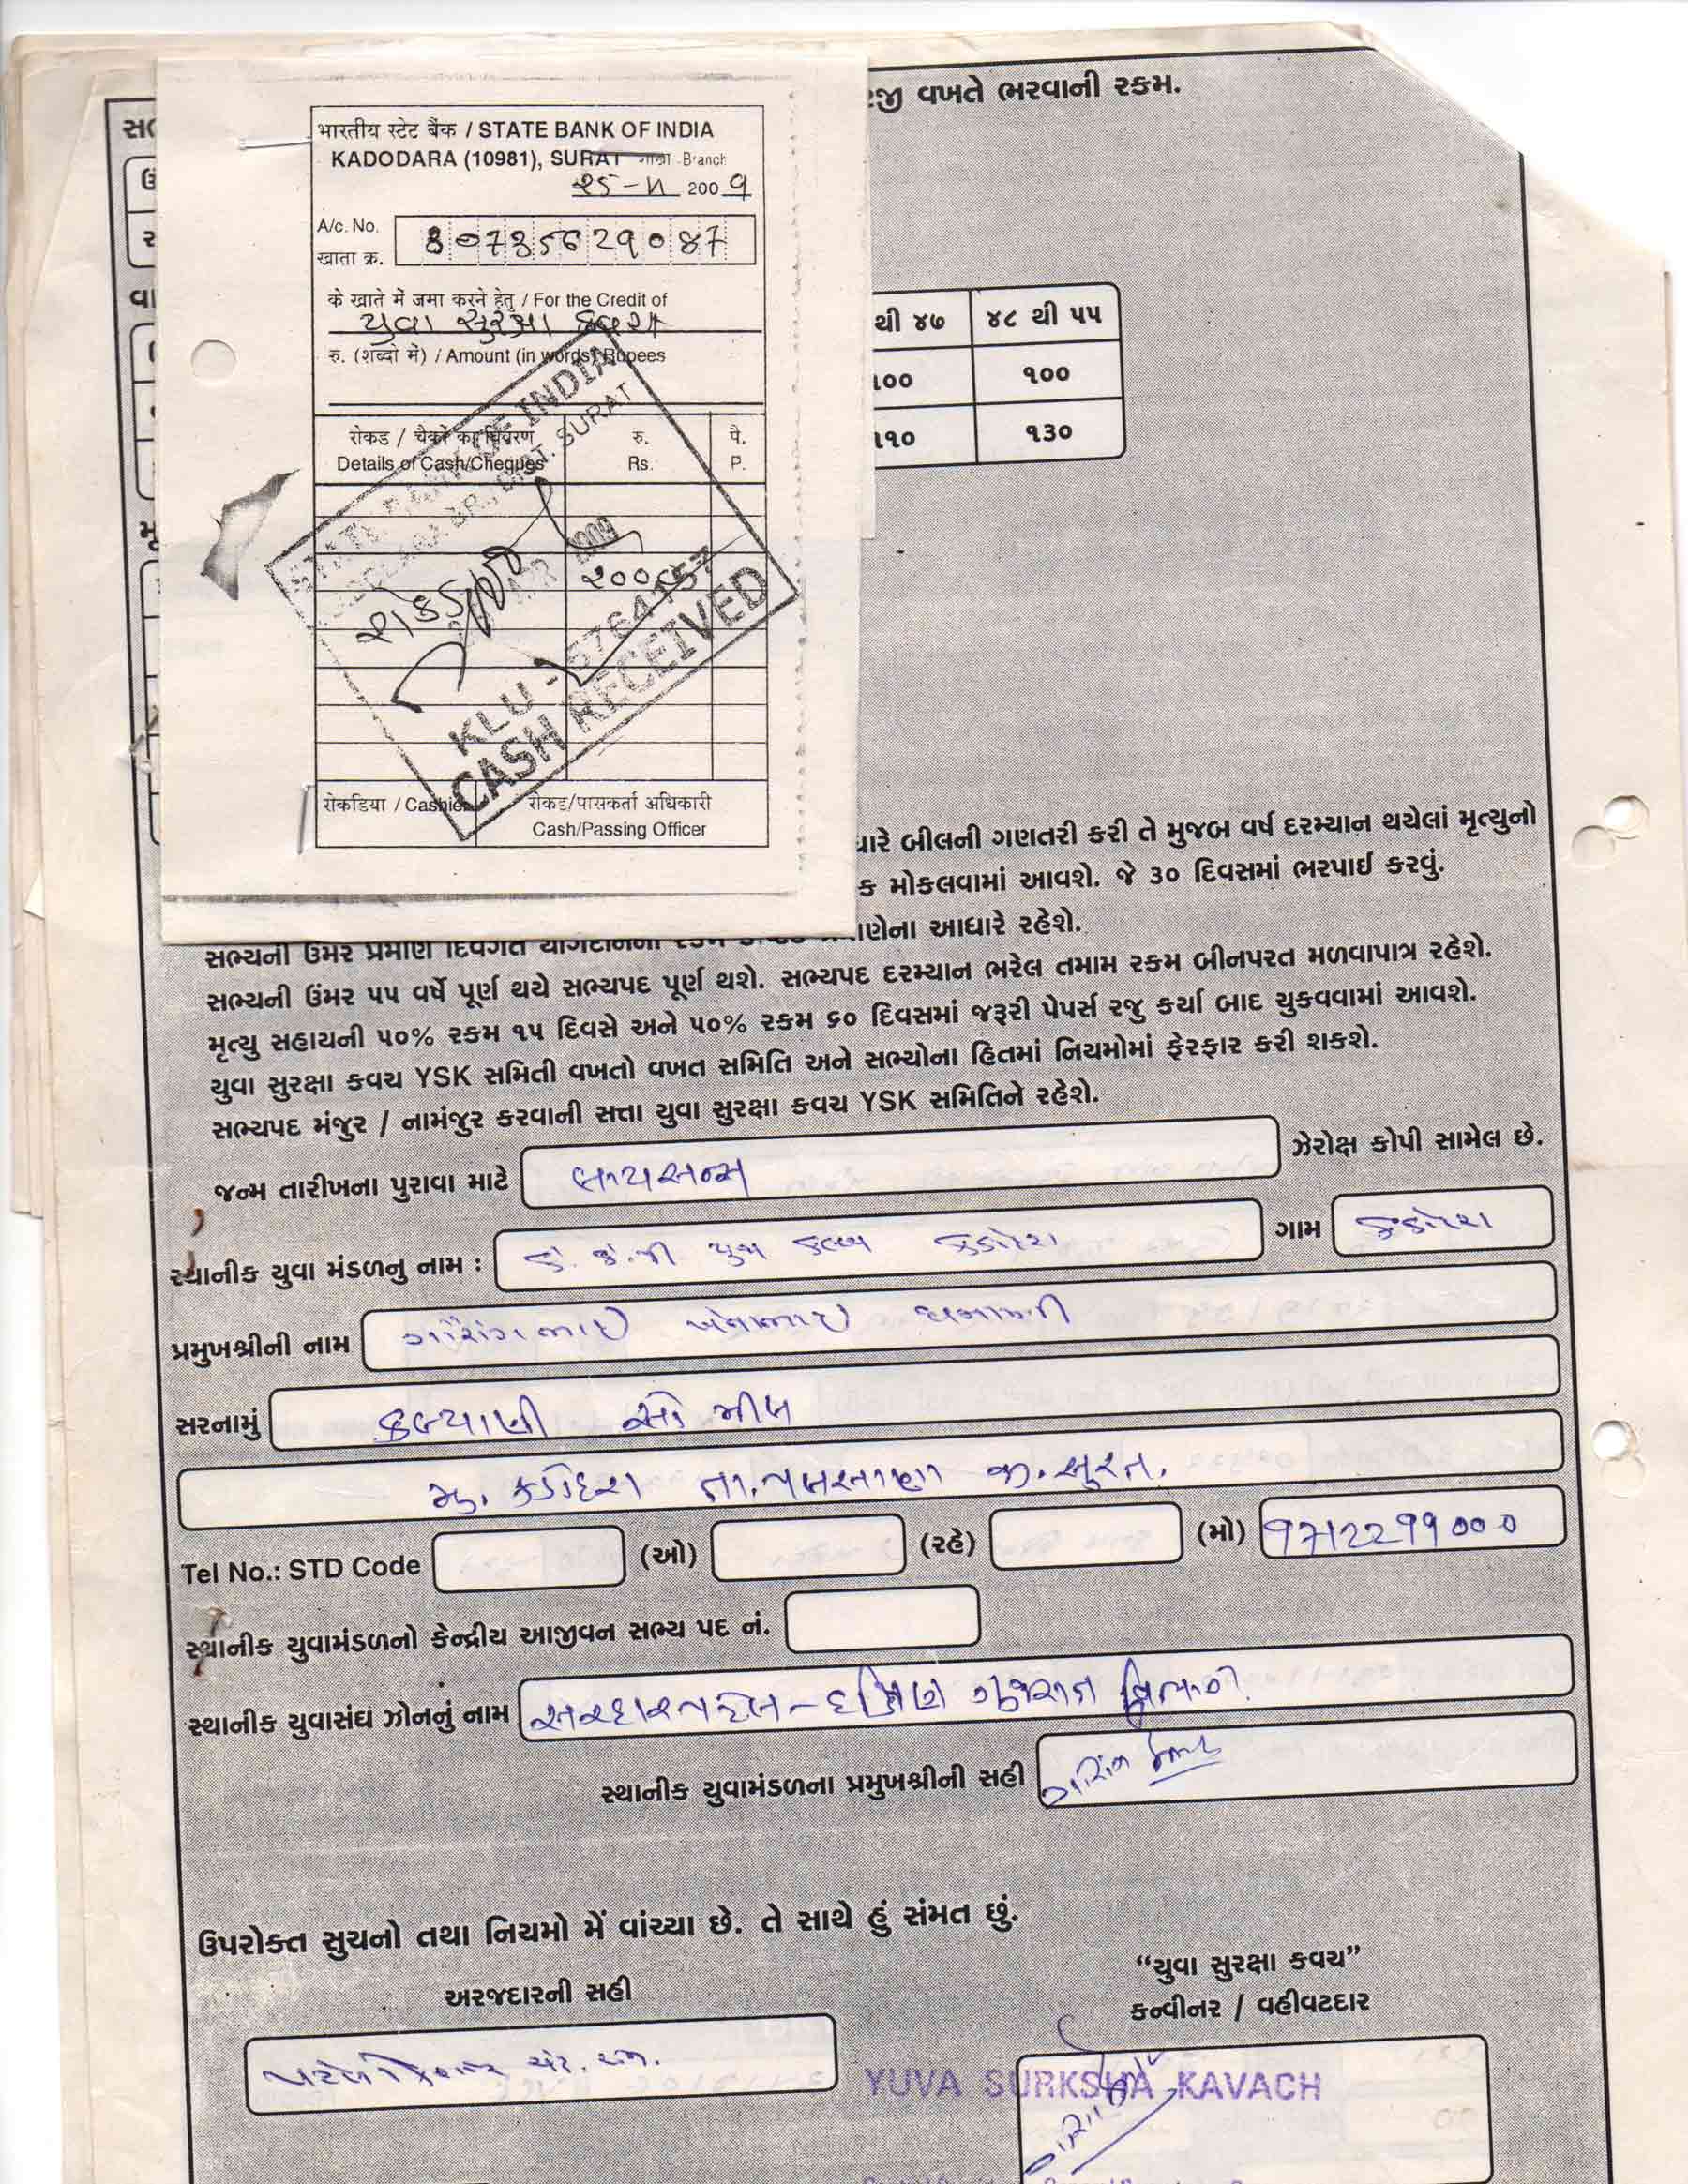 રજી વખતે ભરવાની રકમ.
भारतीय स्टेट बैंक / STATE BANK OF INDIA
KADODARA (10981), SURAT शाखा -Branch
200 9
A/c. No.
खाता क्र.
के खाते में जमा करने हेतु / For the Credit of
યુવા સુરક્ષા કવચ
रु. (शब्दो में) / Amount (in words) Rupees
रोकड / चैकों का विवरण रु. पै.
Details of Cash/Cheques Rs. P.
STATE BANK OF INDIA
DIST. SURAT
2009
KLU - 5764157
CASH RECEIVED
रोकडिया / Cashier रोकड/पासकर्ता अधिकारी
Cash/Passing Officer
થી ૪૭ ૪૮ થી ૫૫
૧૦૦ ૧૦૦
૧૧૦ ૧૩૦
બીલની ગણતરી કરી તે મુજબ વર્ષ દરમ્યાન થયેલાં મૃત્યુનો
મોકલવામાં આવશે. જે ૩૦ દિવસમાં ભરપાઈ કરવું.
સભ્યની ઉંમર પ્રમાણે દિવંગત આધારે રહેશે.
સભ્યની ઉંમર ૫૫ વર્ષે પૂર્ણ થયે સભ્યપદ પૂર્ણ થશે. સભ્યપદ દરમ્યાન ભરેલ તમામ રકમ બીનપરત મળવાપાત્ર રહેશે.
મૃત્યુ સહાયની ૫૦% રકમ ૧૫ દિવસે અને ૫૦% રકમ ૬૦ દિવસમાં જરૂરી પેપર્સ રજુ કર્યા બાદ ચુકવવામાં આવશે.
યુવા સુરક્ષા કવચ YSK સમિતી વખતો વખત સમિતિ અને સભ્યોના હિતમાં નિયમોમાં ફેરફાર કરી શકશે.
સભ્યપદ મંજુર / નામંજુર કરવાની સત્તા યુવા સુરક્ષા કવચ YSK સમિતિને રહેશે.
જન્મ તારીખના પુરાવા માટે લાયસન્સ ઝેરોક્ષ કોપી સામેલ છે.
સ્થાનીક યુવા મંડળનુ નામ : ગામ કડોદરા
પ્રમુખશ્રીની નામ
સરનામું કલ્યાણી સો મીલ
મુ. કડોદરા તા. પલસાણા જી. સુરત.
Tel No.: STD Code (ઓ) (રહે) (મો) 9712299000
સ્થાનીક યુવામંડળનો કેન્દ્રીય આજીવન સભ્ય પદ નં.
સ્થાનીક યુવાસંઘ ઝોનનું નામ સરદાર પટેલ - દક્ષિણ ગુજરાત
સ્થાનીક યુવામંડળના પ્રમુખશ્રીની સહી
ઉપરોક્ત સુચનો તથા નિયમો મેં વાંચ્યા છે. તે સાથે હું સંમત છું.
અરજદારની સહી
“યુવા સુરક્ષા કવચ”
કન્વીનર / વહીવટદાર
YUVA SURKSHA KAVACH